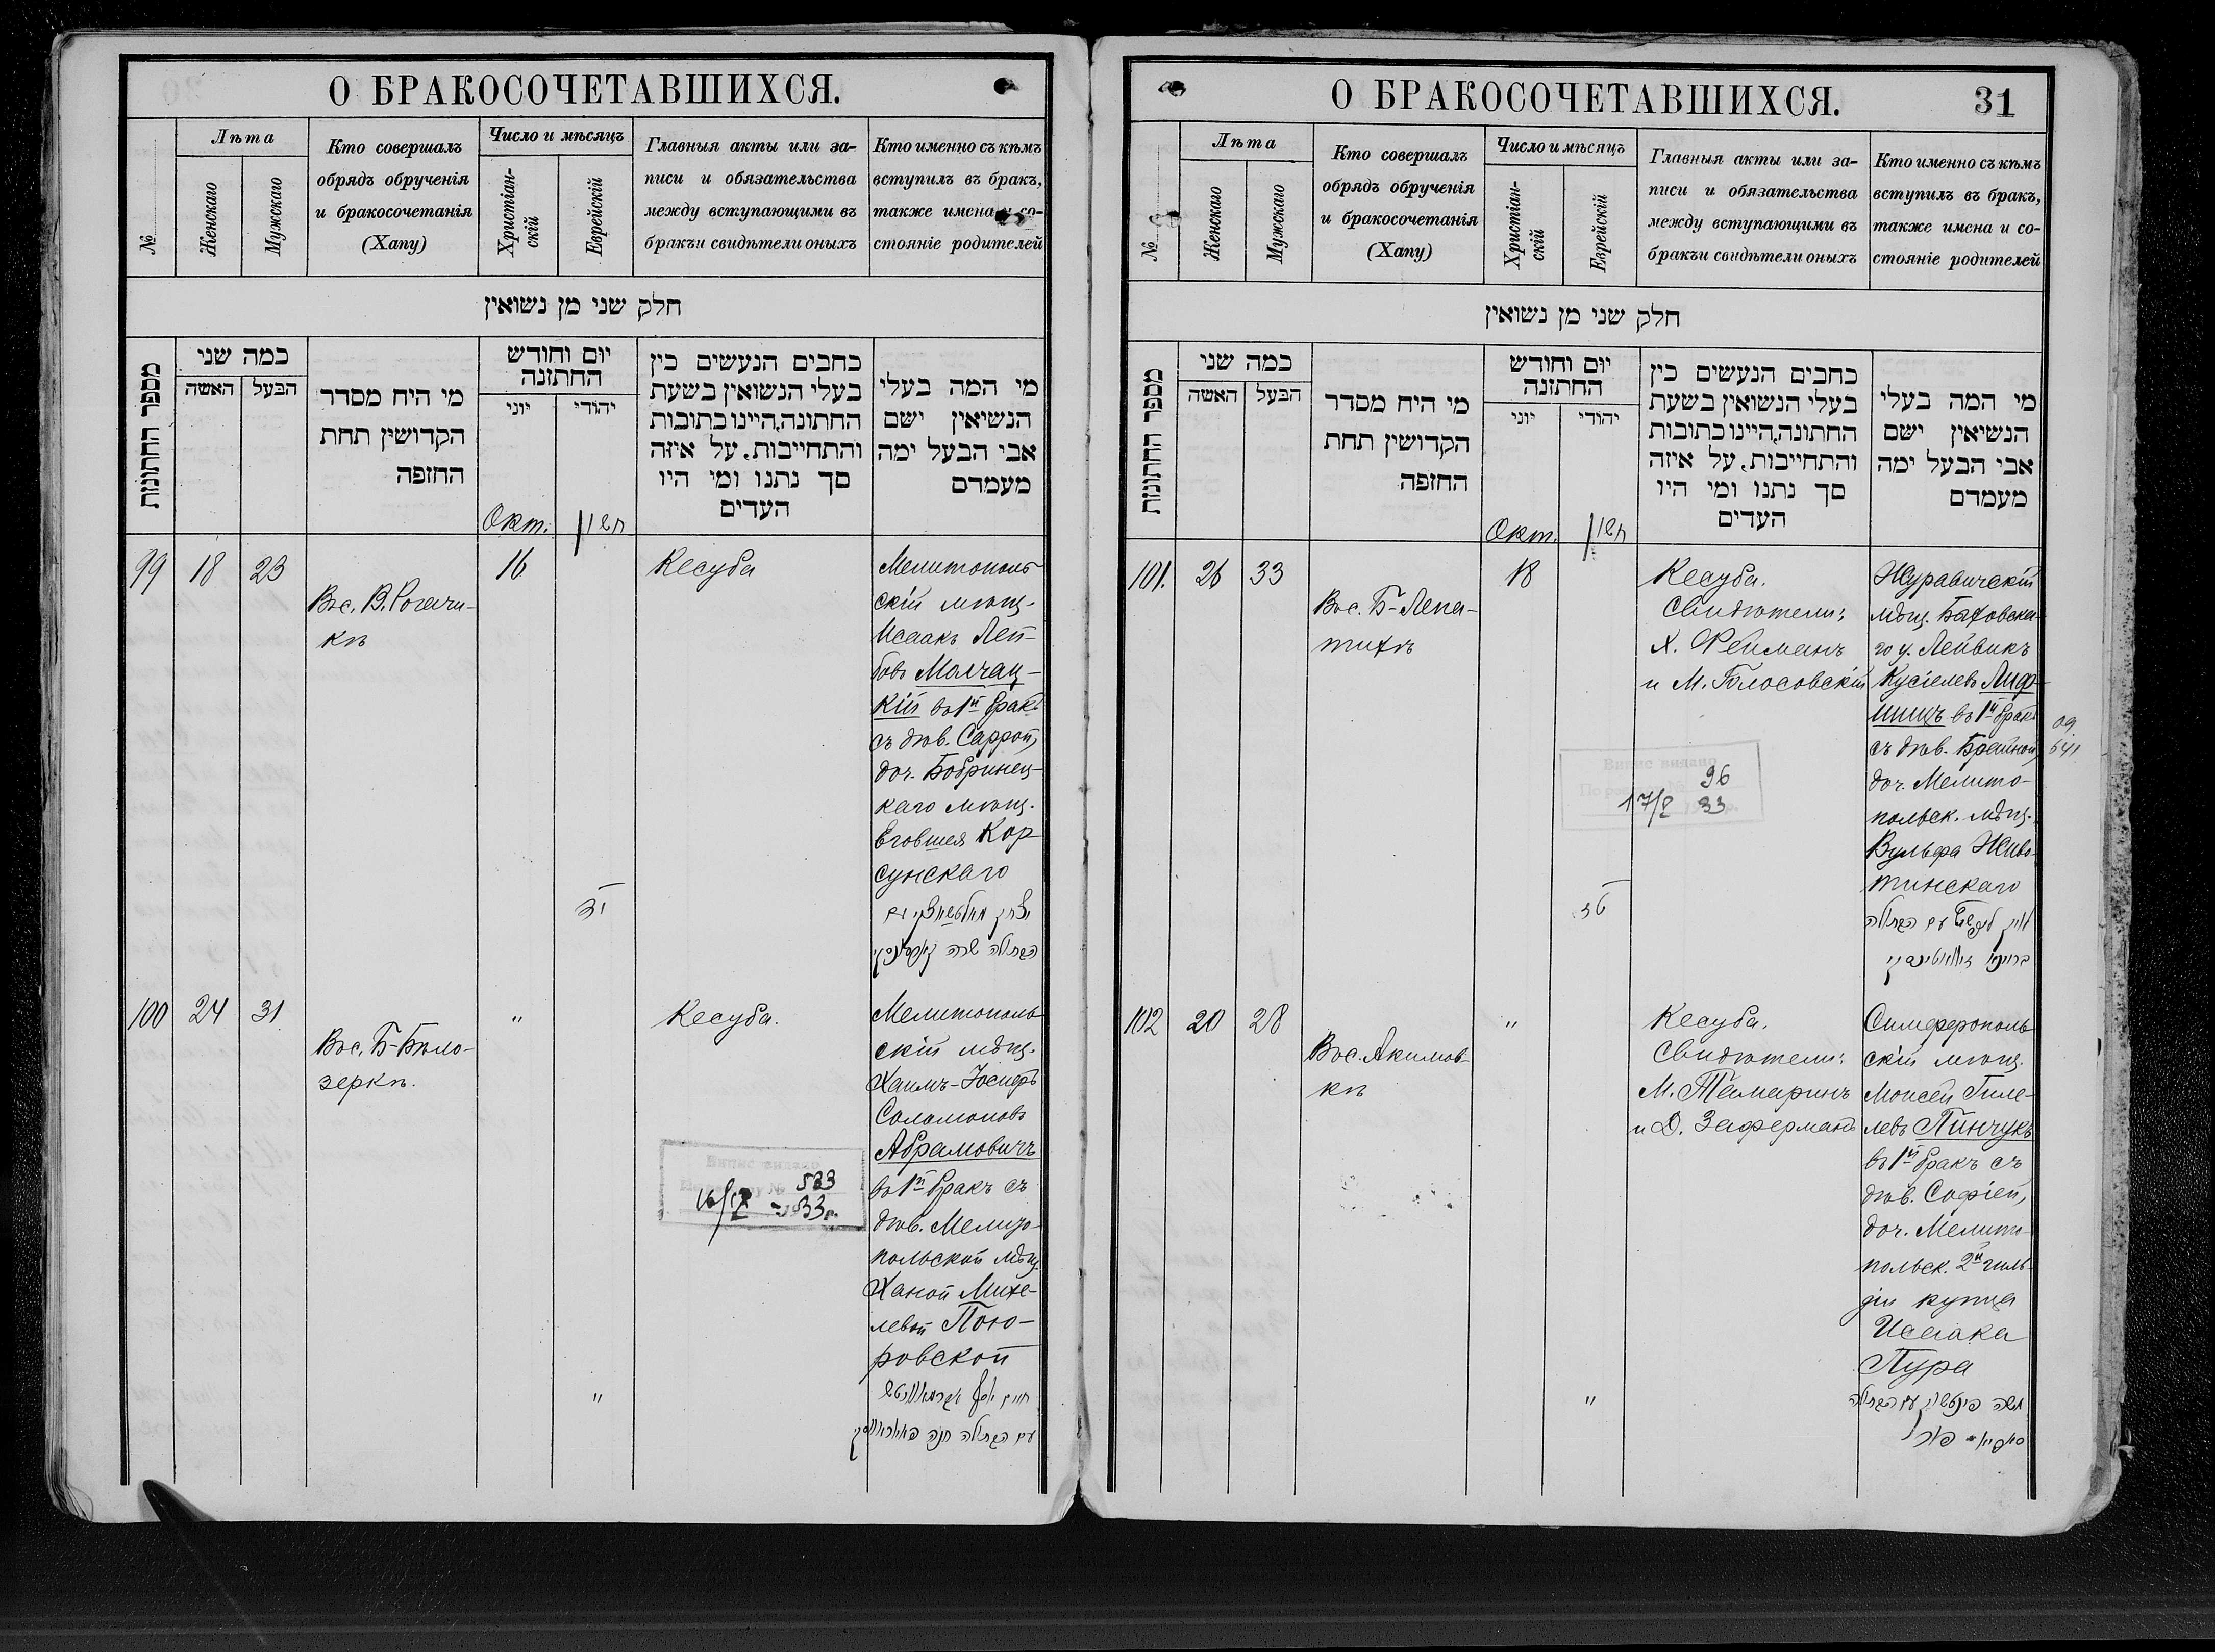 О БРАКОСОЧЕТАВШИХСЯ.
№
Лѣта
Женскаго
Мужскаго
Кто совершалъ
обрядъ обрученія
и бракосочетанія
(Хапу)
Число и мѣсяцъ
Христіан-
скій
Еврейскій
Главныя акты или за-
писи и обязательства
между вступающими въ
бракъи свидѣтели оныхъ
Кто именно съ кѣмъ
вступилъ въ бракъ,
также имена и со-
стояніе родителей
חלק שני מן נשואין
מספר החתונות
כמה שני
האשה
הבעל
מי היח מסדר
הקדושין תחת
החופה
יום וחודש
החתונה
יוני
יהודי
כחבים הנעשים כין
בעלי הנשואין בשעת
החתונה,היינו כתובות
והתחייבות, על איזה
סך נתנו ומי היו
העדים
מי המה בעלי
הנשיאין ישם
אבי הבעל ימה
מעמדם
Окт.
חשון
99
18
23
Въс. В. Рогачи-
кѣ
16
Кесуба
Мелитополь-
скій мѣщ.
Исаакъ Лей-
бовъ Молчац-
кій въ 1й бракъ
съ дѣв. Саррой,
доч. Бобринец-
каго мѣщ.
Еговшея Кор-
сунскаго
הבתולה שרה
100
24
31
Въс. Б-Бѣло-
зеркѣ.
"
Кесуба.
Мелитополь-
скій мѣщ.
Хаимъ-Іосифъ
Соломоновъ
Абрамовичъ
въ 1й бракъ съ
дѣв. Мелито-
польской мѣщ.
Ханой Михе-
левой Пою-
ровской
"
חיים יוסף
עם הבתולה חנה
Випис видано
533
33 р.
О БРАКОСОЧЕТАВШИХСЯ.
31
№
Лѣта
Женскаго
Мужскаго
Кто совершалъ
обрядъ обрученія
и бракосочетанія
(Хапу)
Число и мѣсяцъ
Христіан-
скій
Еврейскій
Главныя акты или за-
писи и обязательства
между вступающими въ
бракъи свидѣтели оныхъ
Кто именно съ кѣмъ
вступилъ въ бракъ,
также имена и со-
стояніе родителей
חלק שני מן נשואין
מספר החתונות
כמה שני
האשה
הבעל
מי היח מסדר
הקדושין תחת
החופה
יום וחודש
החתונה
יוני
יהודי
כחבים הנעשים כין
בעלי הנשואין בשעת
החתונה,היינו כתובות
והתחייבות, על איזה
סך נתנו ומי היו
העדים
מי המה בעלי
הנשיאין ישם
אבי הבעל ימה
מעמדם
Окт.
חשון
101.
26
33
Въс. Б-Лепа-
тихѣ
18
Кесуба.
Свидѣтели:
Х. Рейманъ
и М. Голосовскій
Журавичскій
мѣщ. Быховска-
го у. Лейвикъ
Кусіелевъ Лиф-
шицъ въ 1й бракъ
съ дѣв. Брайной,
доч. Мелито-
польск. мѣщ.
Вульфа Живо-
тинскаго
עם הבתולה
Випис видано
96
33
102
20
28
Въс. Акимов-
кѣ
"
Кесуба.
Свидѣтели:
М. Тамаринъ
и Д. Заферманъ
Симферополь-
скій мѣщ.
Моисей Гиле-
левъ Пинчукъ
въ 1й бракъ съ
дѣв. Софіей,
доч. Мелито-
польск. 2й гиль-
діи купца
Исаака
Пура
"
משה פינטשוק עם הבתולה
פור